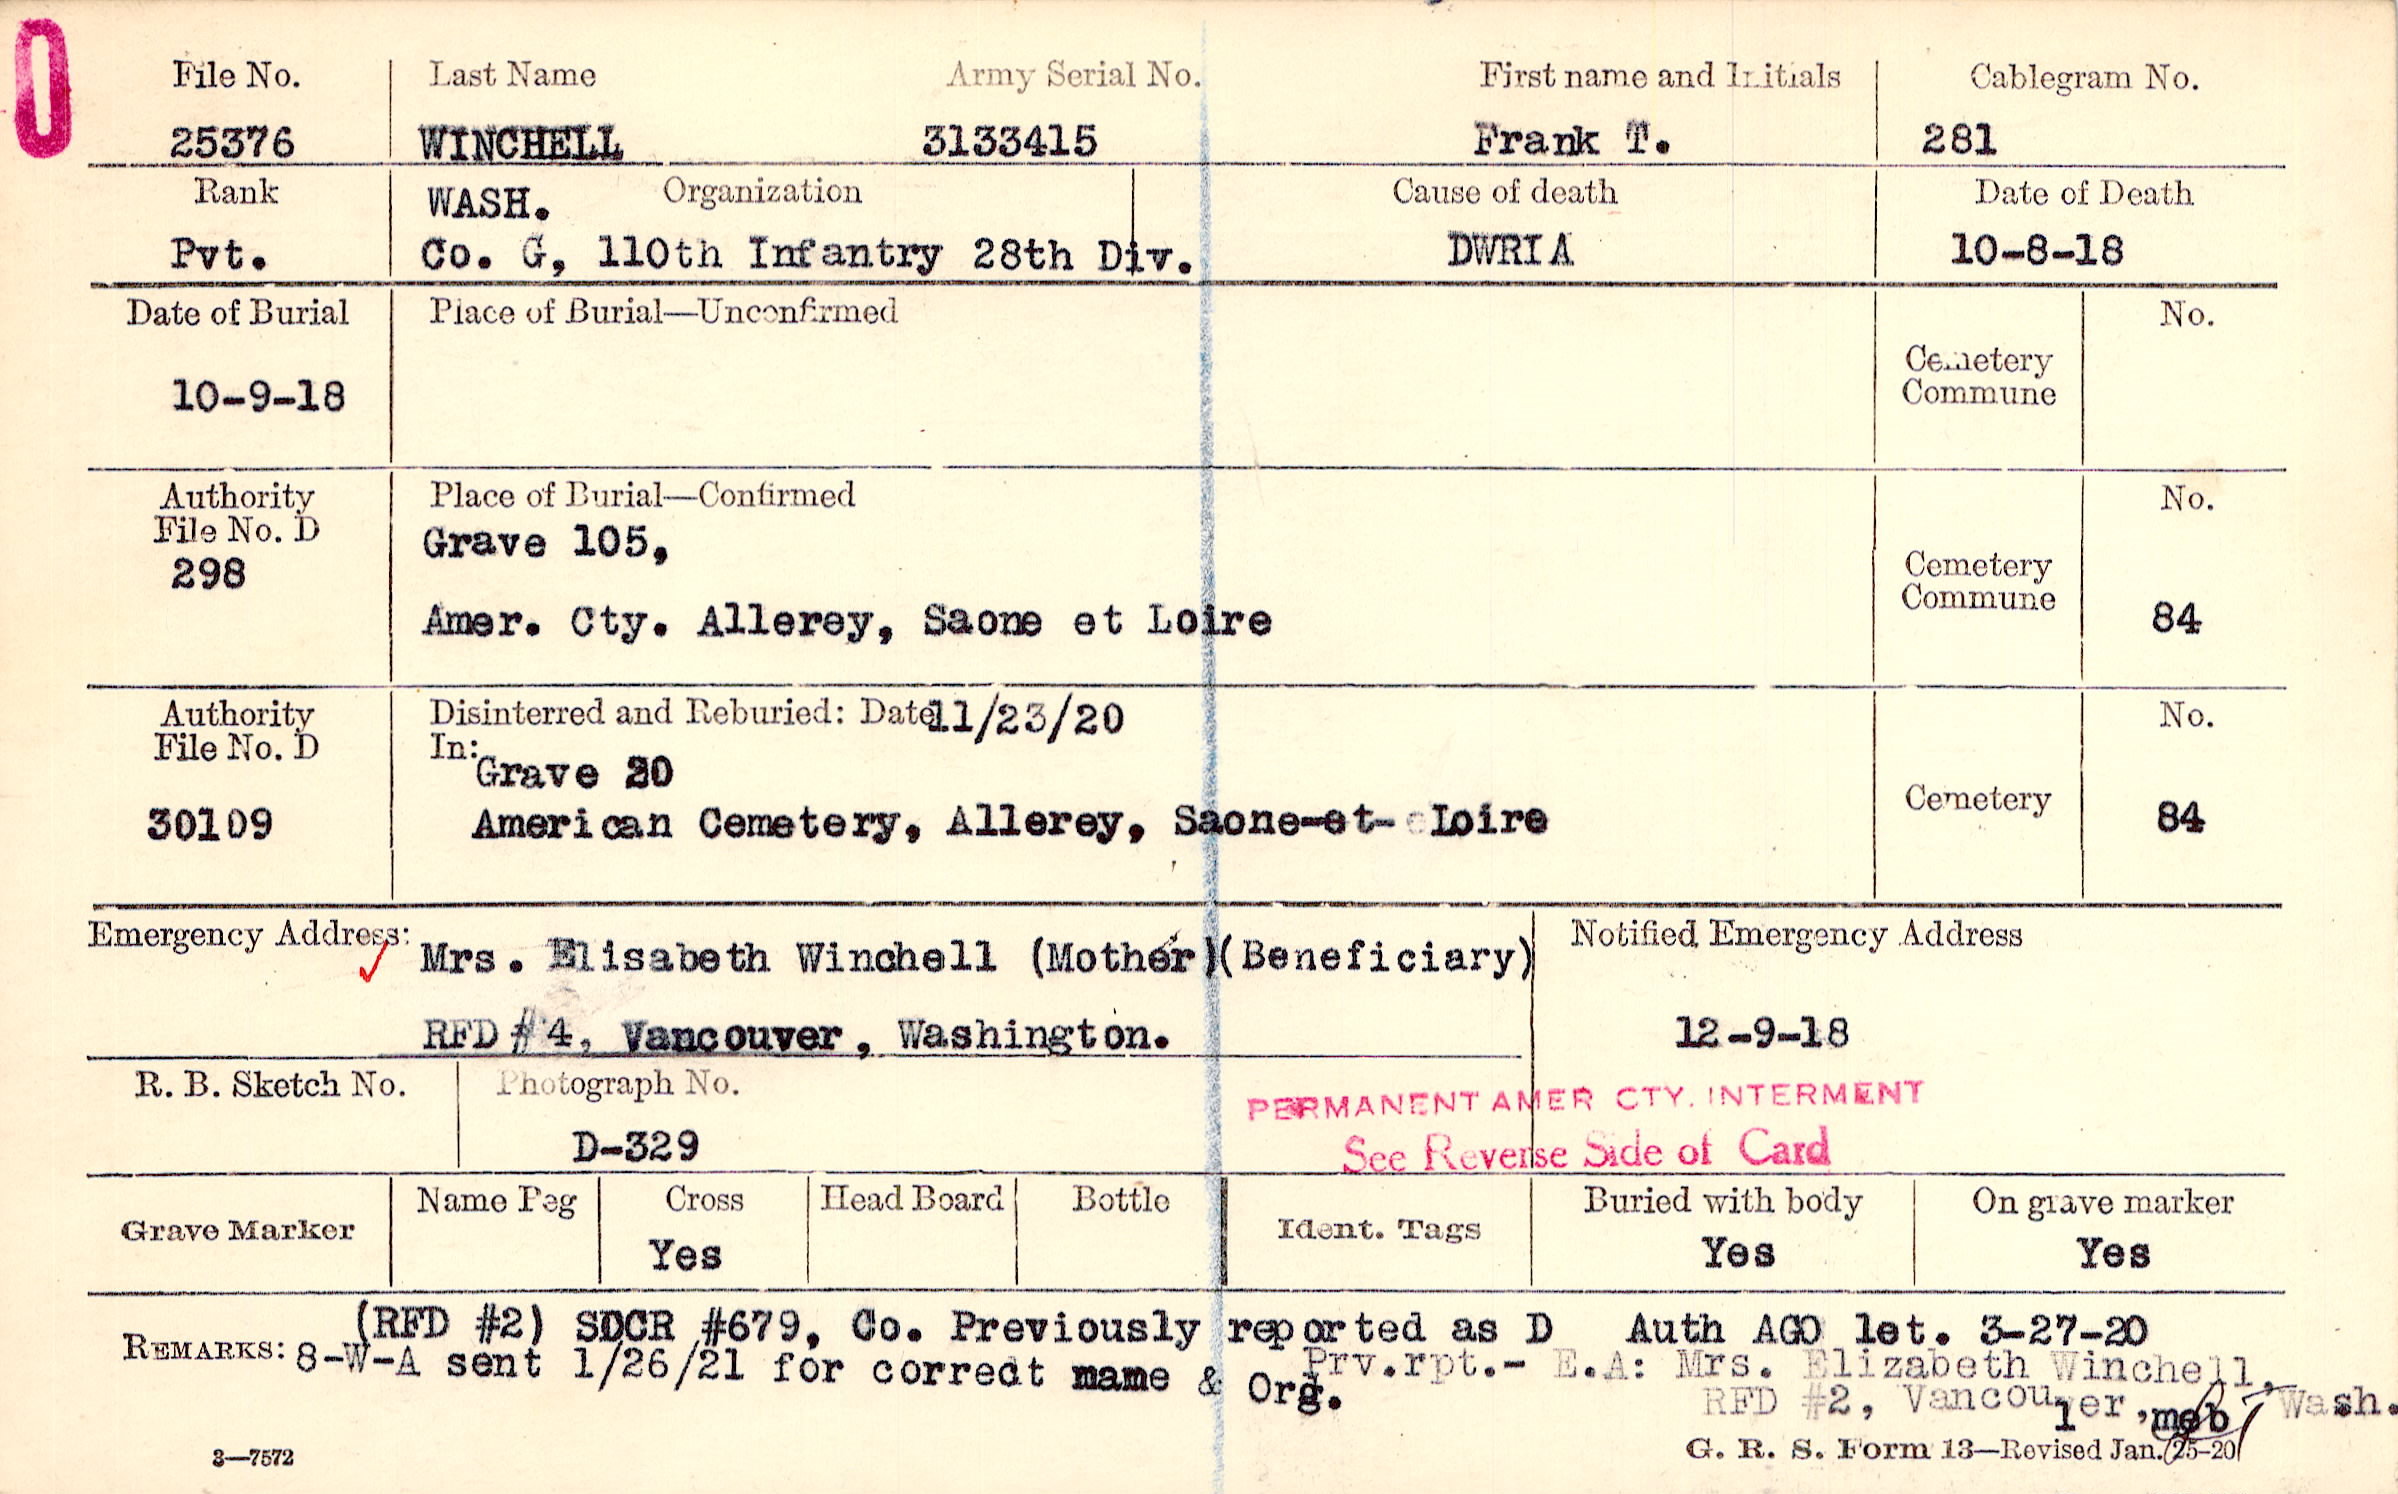 0
File No. Last Name Army Serial No. First name and Initials Cablegram No.
25376 WINCHELL 3133415 Frank T. 281
Rank WASH. Organization Cause of death Date of Death
Pvt. Co. G, 110th Infantry 28th Div. DWRIA 10-8-18
Date of Burial Place of Burial—Unconfirmed No.
Cemetery
Commune
10-9-18
Authority Place of Burial—Confirmed No.
File No. D Grave 105,
298 Cemetery
Commune
Amer. Cty. Allerey, Saone et Loire 84
Authority Disinterred and Reburied: Date 11/23/20 No.
File No. D In:
Grave 20
30109 American Cemetery, Allerey, Saone-et- Loire Cemetery 84
Emergency Address: Mrs. Elisabeth Winchell (Mother)(Beneficiary) Notified Emergency Address
RFD #4, Vancouver, Washington. 12-9-18
R. B. Sketch No. Photograph No.
PERMANENT AMER CTY. INTERMENT
D-329 See Reverse Side of Card
Grave Marker Name Peg Cross Head Board Bottle Ident. Tags Buried with body On grave marker
Yes Yes Yes
(RFD #2) SDCR #679, Co. Previously reported as D Auth AGO let. 3-27-20
REMARKS: 8-W-A sent 1/26/21 for corredt name & Org.
Prv.rpt.- E.A: Mrs. Elizabeth Winchell,
RFD #2, Vancouver, Wash.
1 meb
3—7572 G. R. S. Form 13—Revised Jan. 25-20